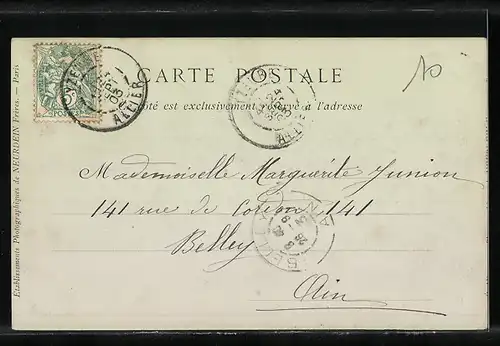 CARTE POSTALE
Ce côté est exclusivement réservé à l'adresse
Mademoiselle Marguerite Junion
141 rue de 141
Belley
Ain
Etablissements Photographiques de NEURDEIN Frères. — Paris
ALLIER
POSTES
10